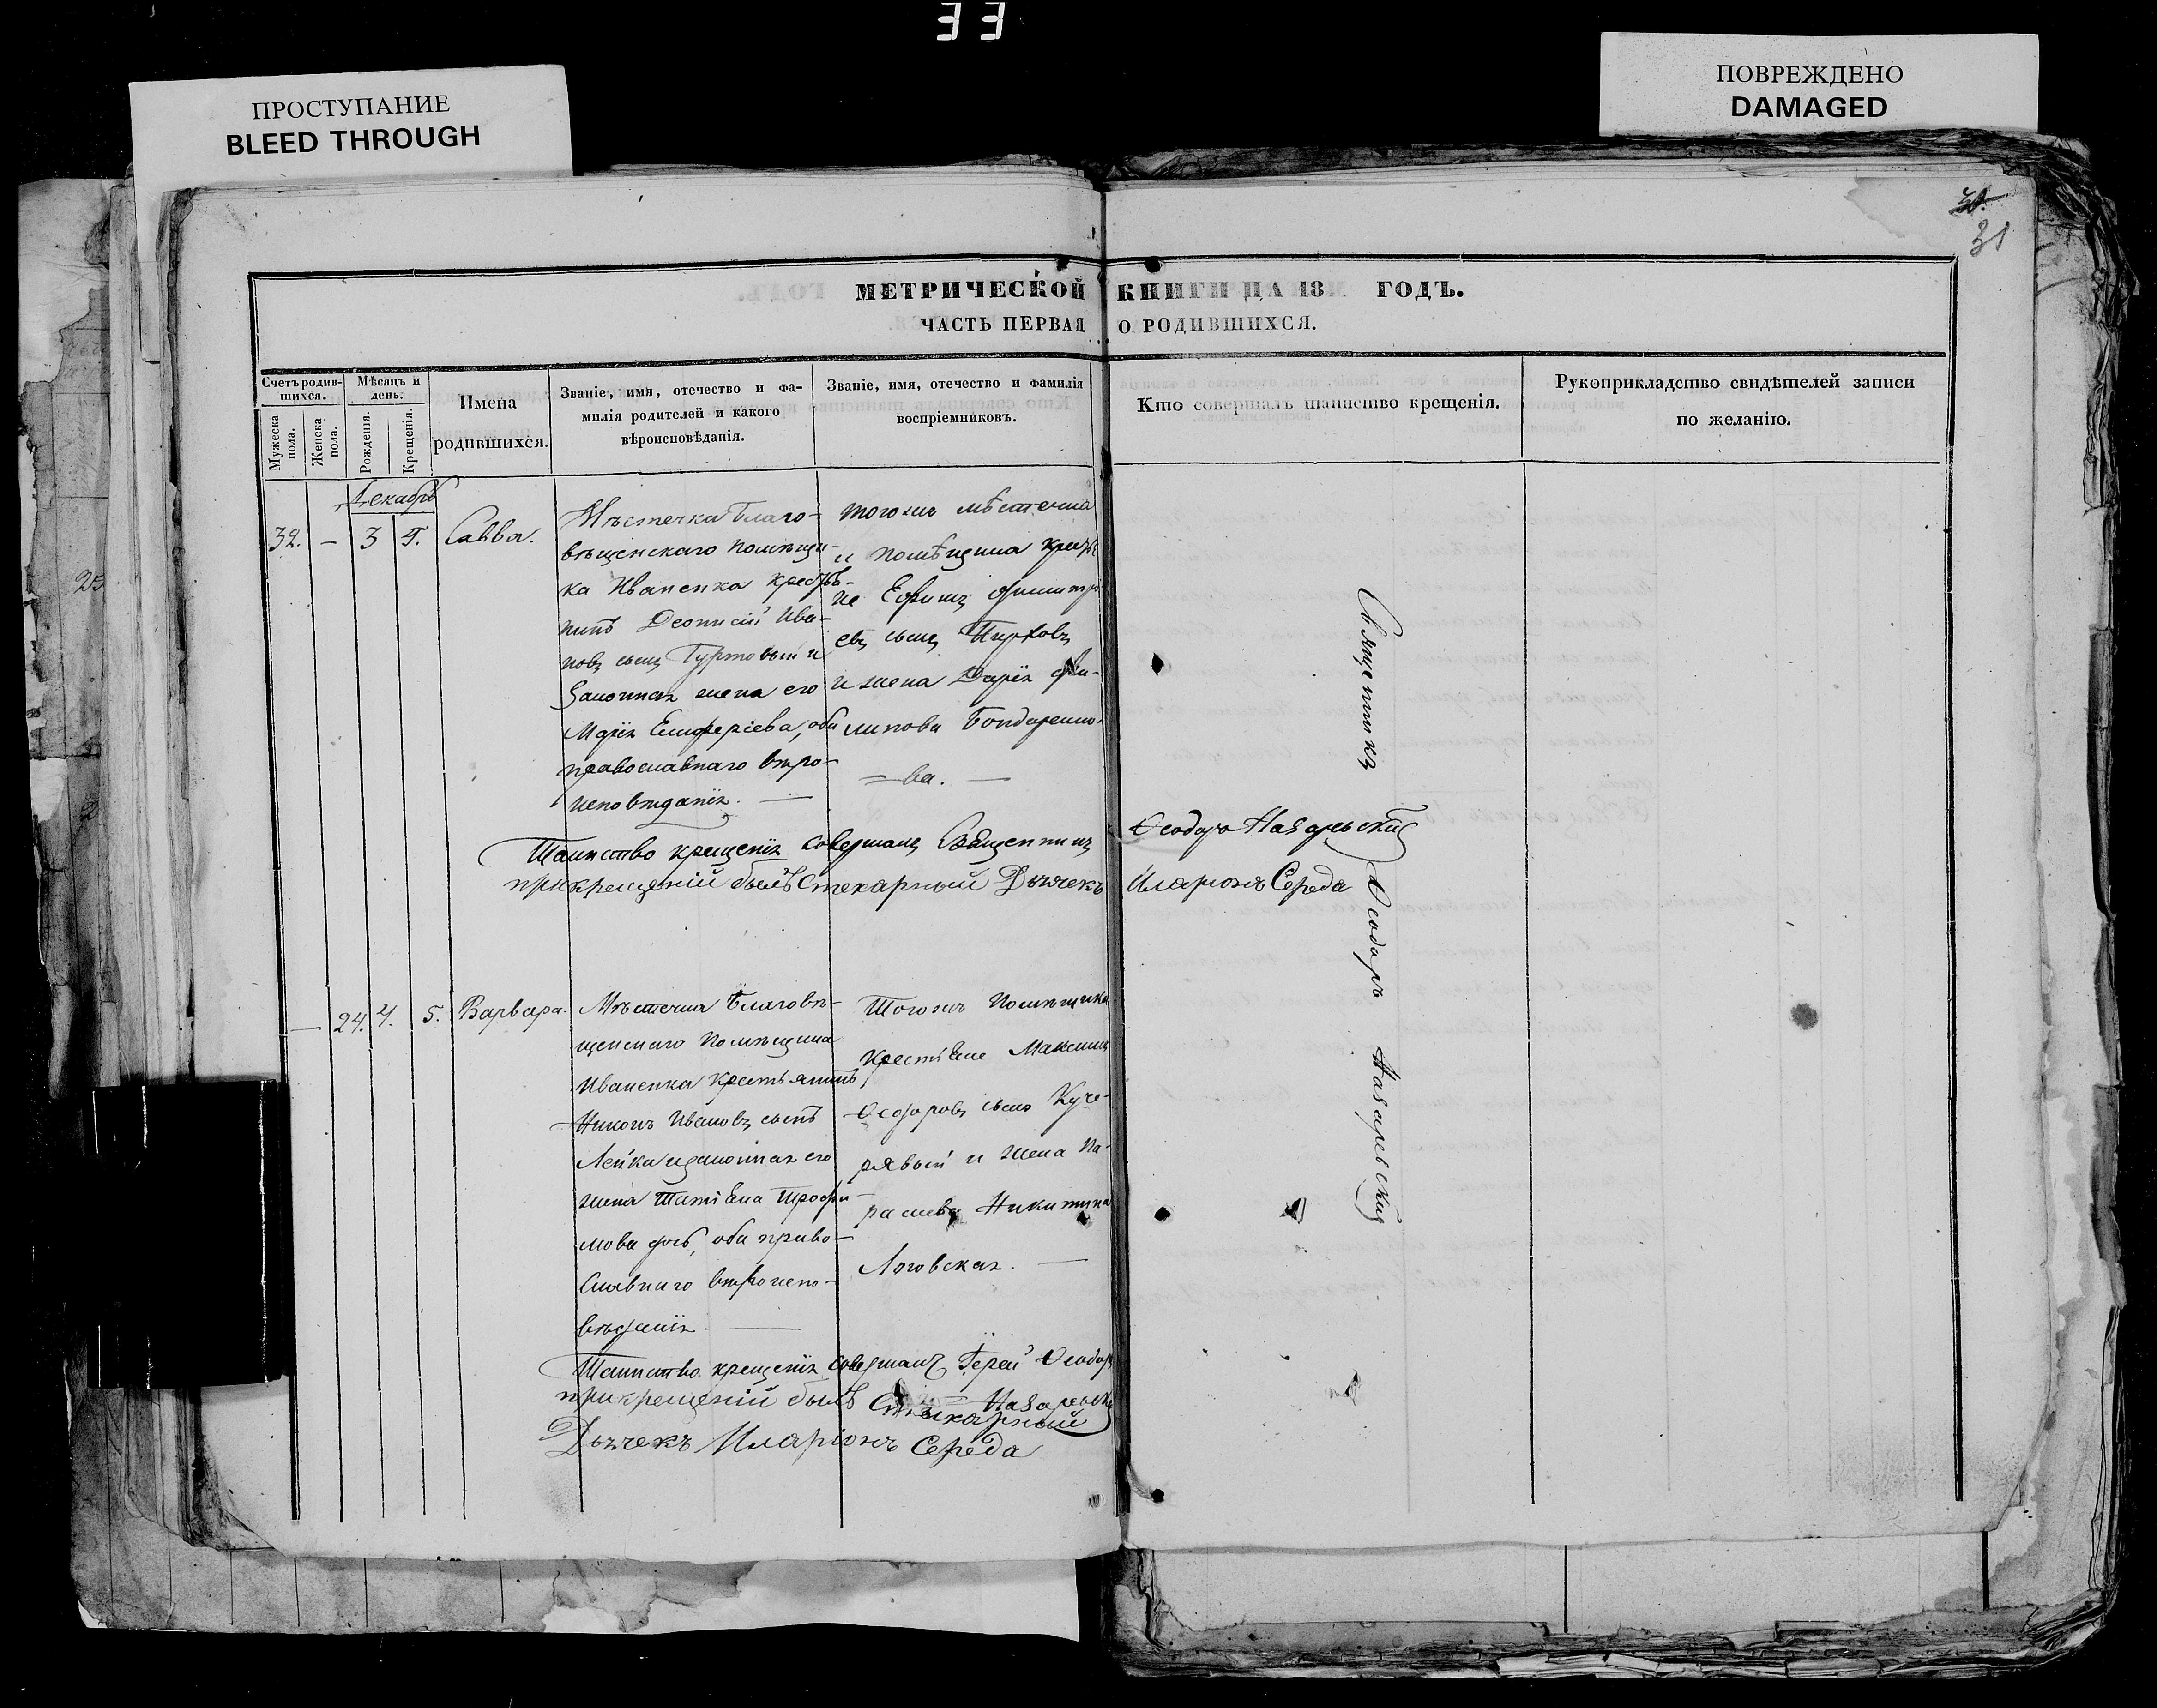 33
ПРОСТУПАНИЕ
BLEED THROUGH
ПОВРЕЖДЕНО
DAMAGED
31
МЕТРИЧЕСКОЙ КНИГИ НА 18 ГОДЪ.
ЧАСТЬ ПЕРВАЯ О РОДИВШИХСЯ.
Счетъ родив-
шихся.
Мужеска
пола.
Женска
пола.
Мѣсяцъ и
день.
Рожденія.
Крещенія.
Имена
родившихся.
Званіе, имя, отечество и фа-
милія родителей и какого
вѣроисновѣданія.
Званіе, имя, отечество и фамилія
воспріемниковъ.
Кто совершалъ таинство крещенія.
Рукоприкладство свидѣтелей записи
по желанію.
Декабрь
32. — 3
Савва.
Мѣстечка Благо-
вѣщенскаго помѣщи-
ка Иваненка крестья-
нинъ Леонтій Ива-
новъ сынъ Гуртовый и
законная жена его
Марія Елиферіева, оба
православнаго вѣро-
исповѣданія. —
тогожъ мѣстечка
и помѣщика кресть
не Ефимъ
евъ сынъ
и жена Дарія Фи-
липова Бондаренко-
ва. —
Таинство крещенія совершалъ Священникъ Ѳеодоръ Назаревскій
при крещеній былъ Стихарный Дьячекъ Иларіонъ Середа
Священникъ Ѳеодоръ Назаревскій
— 24. 4. 5. Варвара.
Мѣстечка Благовѣ-
щенскаго помѣщика
Иваненка крестьянинъ
Никонъ Ивановъ сынъ
Лейка и законная его
жена Татіана Трофи-
мова дочь, оба право-
славнаго вѣроиспо-
вѣданія. —
Тогожъ помѣщика
крестьяне Максимъ
Ѳеодоровъ сынъ Куче-
рявый и жена Па-
раскева Никитина
Логовская. —
Таинство крещенія совершалъ Іерей Ѳеодоръ
Назаревскій
при крещеній былъ Стихарный
Дьячекъ Иларіонъ Середа